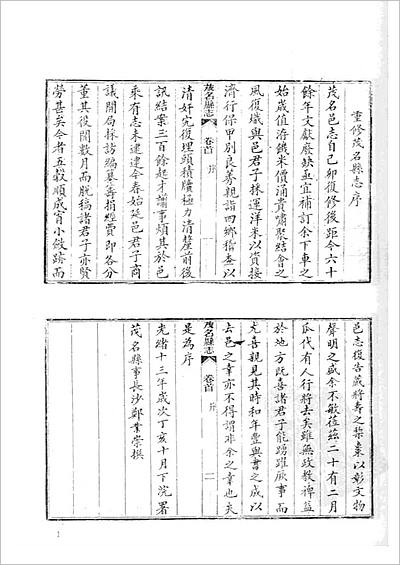 重修茂名縣志序
茂名邑志自己卯復修後距今六十
餘年文獻廢缺亟宜補訂余下車之
始歲值洊饑米價涌貴嘯聚結會之
風復熾與邑君子採運洋米以資接
濟行保甲別良莠親詣四鄉稽查以
茂名縣志 卷首 序 一
清奸宄復埋頭積牘極力清釐前後
訊結案三百餘起才謭事煩其於邑
乘有志未逮逮今春始延邑君子商
議開局採訪編纂籌捐經費即各分
董其役閱數月而脫稿諸君子亦賢
勞甚矣今者五穀順成宵小斂跡而
邑志復告蕆將壽之棃棗以彰文物
聲明之盛余不敏蒞茲二十有二月
瓜代有人行將去矣雖無政教裨益
於地方既喜諸君子能踴躍厥事而
尤喜親見其時和年豐與書之成以
去邑之幸亦不得謂非余之幸也夫
茂名縣志 卷首 序 二
是為序
光緒十三年歲次丁亥十月下浣署
茂名縣事長沙鄭業崇撰
1